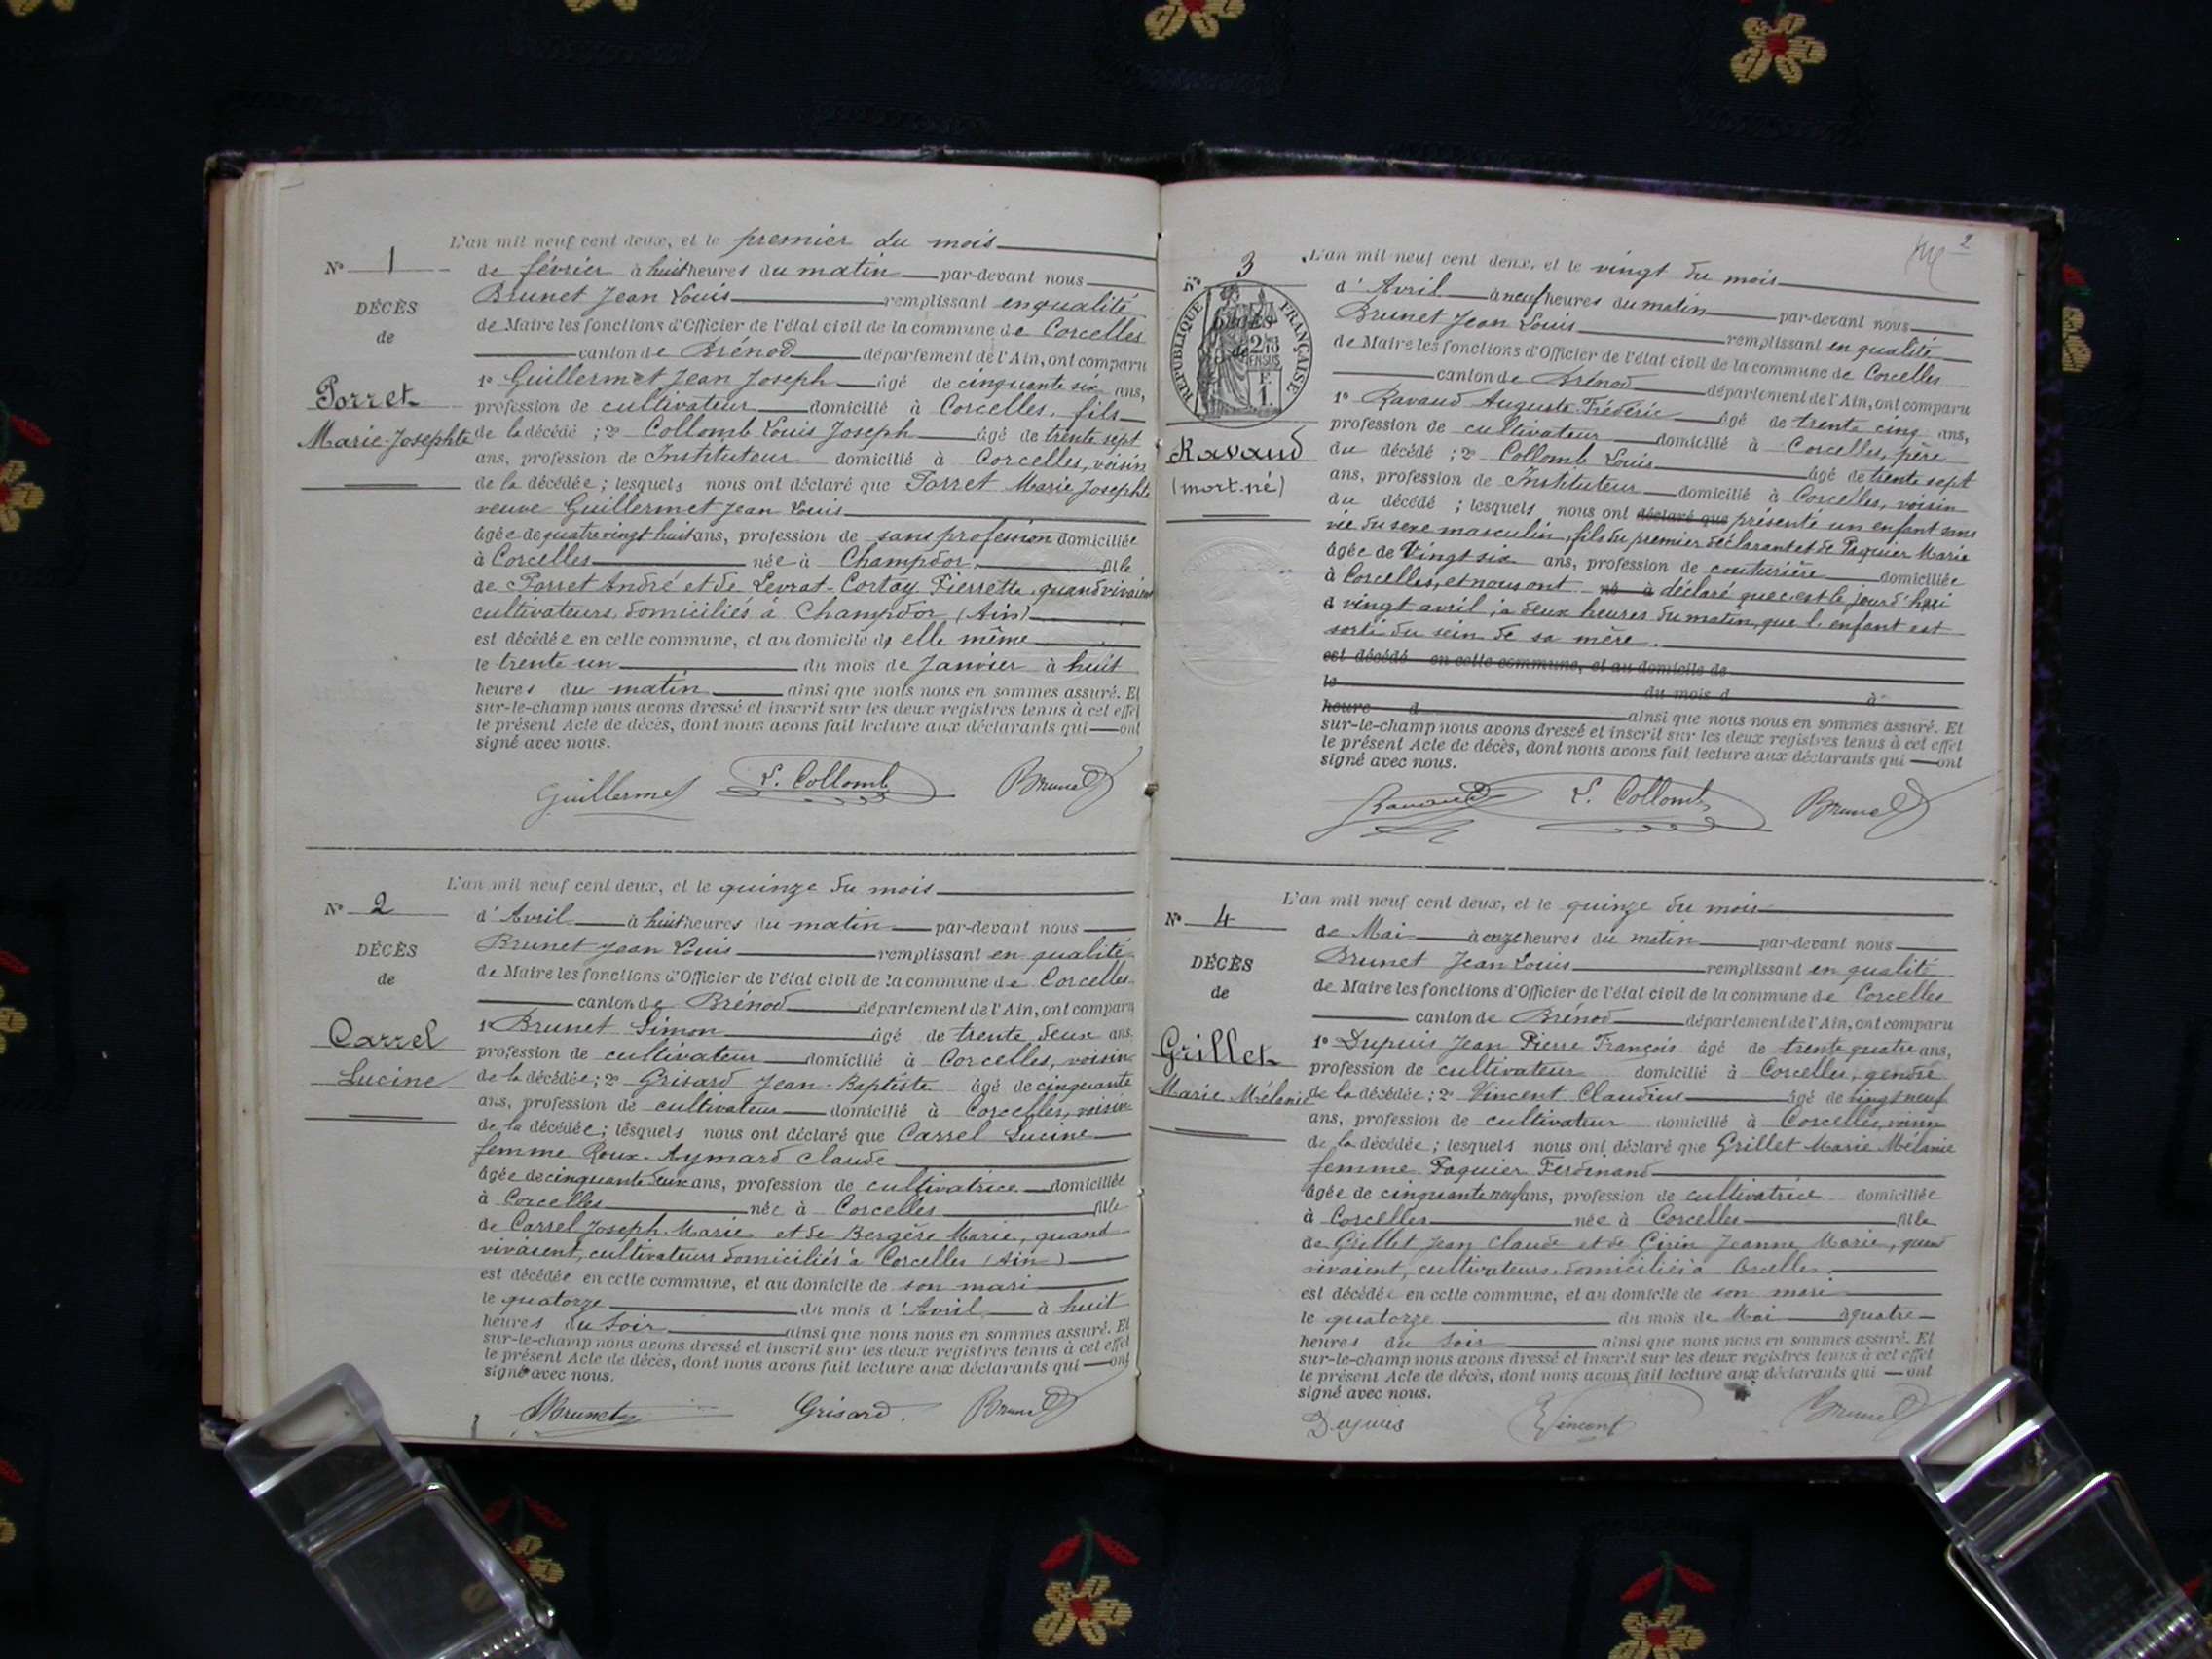 L'an mil neuf cent deux, et le premier du mois
N° 1
de février à huit heures du matin par-devant nous
Brunet Jean Louis remplissant en qualité
DÉCÈS
de Maire les fonctions d'Officier de l'état civil de la commune de Corcelles
de
canton de Brénod département de l'Ain, ont comparu
1° Guillermet Jean Joseph âgé de cinquante six ans,
Porret
profession de cultivateur domicilié à Corcelles, fils
Marie-Josephte
de la décédé ; 2° Collomb Louis Joseph âgé de trente sept
ans, profession de Instituteur domicilié à Corcelles, voisin
de la décédée ; lesquels nous ont déclaré que Porret Marie Josephte
veuve Guillermet Jean Louis
âgée de quatre vingt huit ans, profession de sans profession domiciliée
à Corcelles née à Champdor fille
de Porret André et de Levrat-Cortay Pierrette, quand vivaient
cultivateurs, domiciliés à Champdor (Ain)
est décédée en cette commune, et au domicile d' elle même
le trente un du mois de Janvier à huit
heures du matin ainsi que nous nous en sommes assuré. Et
sur-le-champ nous avons dressé et inscrit sur les deux registres tenus à cet effet
le présent Acte de décès, dont nous avons fait lecture aux déclarants qui — ont
signé avec nous.
Guillermet L. Collomb Brunet
L'an mil neuf cent deux, et le quinze du mois
N° 2
d'Avril à huit heures du matin par-devant nous
DÉCÈS
Brunet Jean Louis remplissant en qualité
de
de Maire les fonctions d'Officier de l'état civil de la commune de Corcelles
canton de Brénod département de l'Ain, ont comparu
1° Brunet Simon âgé de trente deux ans
Carrel
profession de cultivateur domicilié à Corcelles, voisin
Lucine
de la décédée ; 2° Grisard Jean-Baptiste âgé de cinquante
ans, profession de cultivateur domicilié à Corcelles, voisin
de la décédée ; lesquels nous ont déclaré que Carrel Lucine
femme Roux-Aymard Claude
âgée de cinquante deux ans, profession de cultivatrice domiciliée
à Corcelles née à Corcelles fille
de Carrel Joseph Marie et de Bergère Marie, quand
vivaient, cultivateurs domiciliés à Corcelles (Ain)
est décédée en cette commune, et au domicile de son mari
le quatorze du mois d'Avril à huit
heures du soir ainsi que nous nous en sommes assuré. Et
sur-le-champ nous avons dressé et inscrit sur les deux registres tenus à cet effet
le présent Acte de décès, dont nous avons fait lecture aux déclarants qui — ont
signé avec nous.
SBrunet Grisard. Brunet
2
N° 3
L'an mil neuf cent deux, et le vingt du mois
d'Avril à neuf heures du matin par-devant nous
RÉPUBLIQUE FRANÇAISE
DÉCÈS
de
Brunet Jean Louis remplissant en qualité
de Maire les fonctions d'Officier de l'état civil de la commune de Corcelles
canton de Brénod département de l'Ain, ont comparu
1° Ravaud Auguste Frédéric âgé de trente cinq ans,
profession de cultivateur domicilié à Corcelles, père
Ravaud
(mort-né)
du décédé ; 2° Collomb Louis âgé de trente sept
ans, profession de Instituteur domicilié à Corcelles, voisin
du décédé ; lesquels nous ont déclaré que présenté un enfant sans
vie du sexe masculin, fils du premier déclarant et de Paquier Marie
âgée de Vingt six ans, profession de couturière domiciliée
à Corcelles, et nous ont né à déclaré que c'est le jour d'hui
vingt avril, à deux heures du matin, que l'enfant est
sorti du sein de sa mère.
est décédé en cette commune, et au domicile de
le du mois d à
heure d ainsi que nous nous en sommes assuré. Et
sur-le-champ nous avons dressé et inscrit sur les deux registres tenus à cet effet
le présent Acte de décès, dont nous avons fait lecture aux déclarants qui — ont
signé avec nous.
Ravaud L. Collomb Brunet
L'an mil neuf cent deux, et le quinze du mois
N° 4
de Mai à onze heures du matin par-devant nous
DÉCÈS
Brunet Jean Louis remplissant en qualité
de
de Maire les fonctions d'Officier de l'état civil de la commune de Corcelles
canton de Brénod département de l'Ain, ont comparu
Grillet
1° Dupuis Jean Pierre François âgé de trente quatre ans,
profession de cultivateur domicilié à Corcelles, gendre
Marie Mélanie
de la décédée ; 2° Vincent Claudius âgé de vingt neuf
ans, profession de cultivateur domicilié à Corcelles, voisin
de la décédée ; lesquels nous ont déclaré que Grillet Marie Mélanie
femme Paquier Ferdinand
âgée de cinquante neuf ans, profession de cultivatrice domiciliée
à Corcelles née à Corcelles fille
de Grillet Jean Claude et de Girin Jeanne Marie, quand
vivaient, cultivateurs, domiciliés à Corcelles.
est décédée en cette commune, et au domicile de son mari
le quatorze du mois de Mai à quatre
heures du soir ainsi que nous nous en sommes assuré. Et
sur-le-champ nous avons dressé et inscrit sur les deux registres tenus à cet effet
le présent Acte de décès, dont nous avons fait lecture aux déclarants qui — ont
signé avec nous.
Dupuis Vincent Brunet